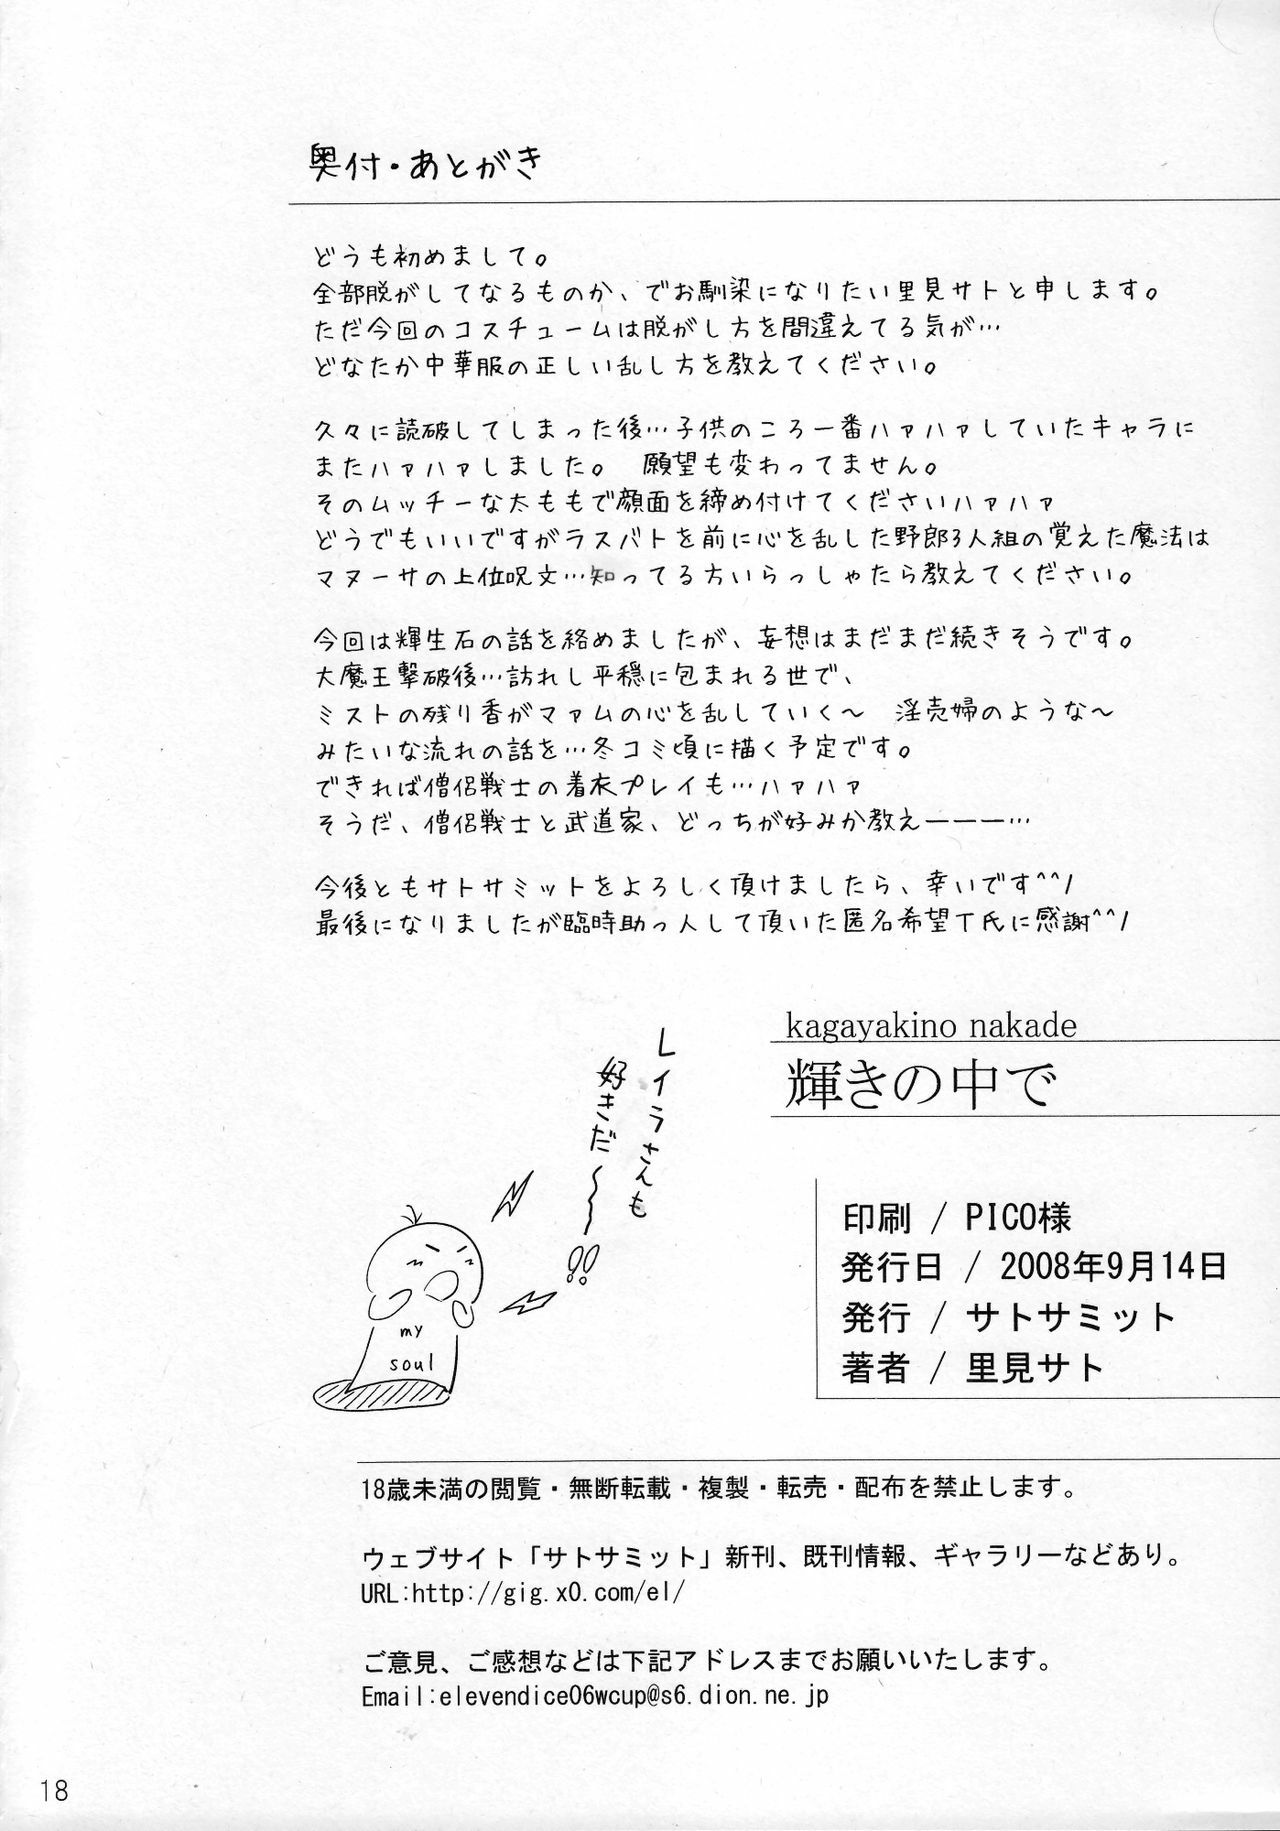 奥付・あとがき
どうも初めまして。
全部脱がしてなるものか、でお馴染になりたい里見サトと申します。
ただ今回のコスチュームは脱がし方を間違えてる気が…
どなたか中華服の正しい乱し方を教えてください。
久々に読破してしまった後…子供のころ一番ハァハァしていたキャラに
またハァハァしました。　願望も変わってません。
そのムッチーな太ももで顔面を締め付けてくださいハァハァ
どうでもいいですがラスバトを前に心を乱した野郎3人組の覚えた魔法は
マヌーサの上位呪文…知ってる方いらっしゃたら教えてください。
今回は輝生石の話を絡めましたが、妄想はまだまだ続きそうです。
大魔王撃破後…訪れし平穏に包まれる世で、
ミストの残り香がマァムの心を乱していく～　淫売婦のような～
みたいな流れの話を…冬コミ頃に描く予定です。
できれば僧侶戦士の着衣プレイも…ハァハァ
そうだ、僧侶戦士と武道家、どっちが好みか教えーーー…
今後ともサトサミットをよろしく頂けましたら、幸いです^^/
最後になりましたが臨時助っ人して頂いた匿名希望T氏に感謝^^/
kagayakino nakade
輝きの中で
レイラさんも
好きだ～～!!
my
soul
印刷 / PICO様
発行日 / 2008年9月14日
発行 / サトサミット
著者 / 里見サト
18歳未満の閲覧・無断転載・複製・転売・配布を禁止します。
ウェブサイト「サトサミット」新刊、既刊情報、ギャラリーなどあり。
URL:http://gig.x0.com/el/
ご意見、ご感想などは下記アドレスまでお願いいたします。
Email:elevendice06wcup@s6.dion.ne.jp
18